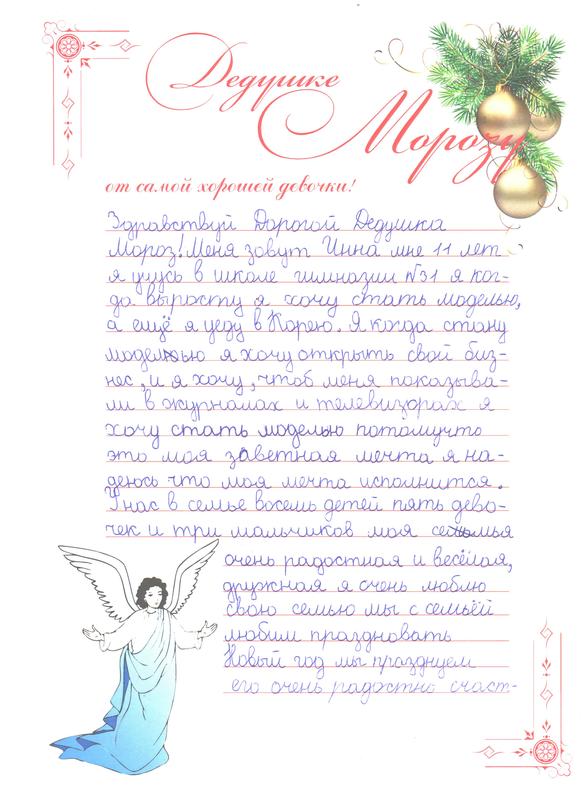 Дедушке
Морозу
от самой хорошей девочки!
Здравствуй Дорогой Дедушка
Мороз! Меня зовут Инна мне 11 лет
я учусь в школе гимназии №31 я ког-
да вырасту я хочу стать моделью,
а ещё я уеду в Корею. Я когда стану
моделью я хочу открыть свой биз-
нес, и я хочу, чтоб меня показыва-
ли в журналах и телевизорах я
хочу стать моделью потомучто
это моя заветная мечта я на-
деюсь что моя мечта исполнится.
У нас в семье восемь детей пять дево-
чек и три мальчиков моя семья
очень радостная и весёлая,
дружная я очень люблю
свою семью мы с семьёй
любим праздновать
Новый год мы празднуем
его очень радостно счаст-